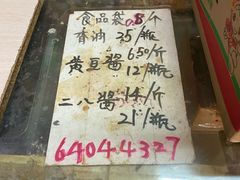 食品袋0.8/个
香油 35/瓶
黄豆酱 6.50/斤
12/瓶
二八酱 14/斤
21/瓶
64044327